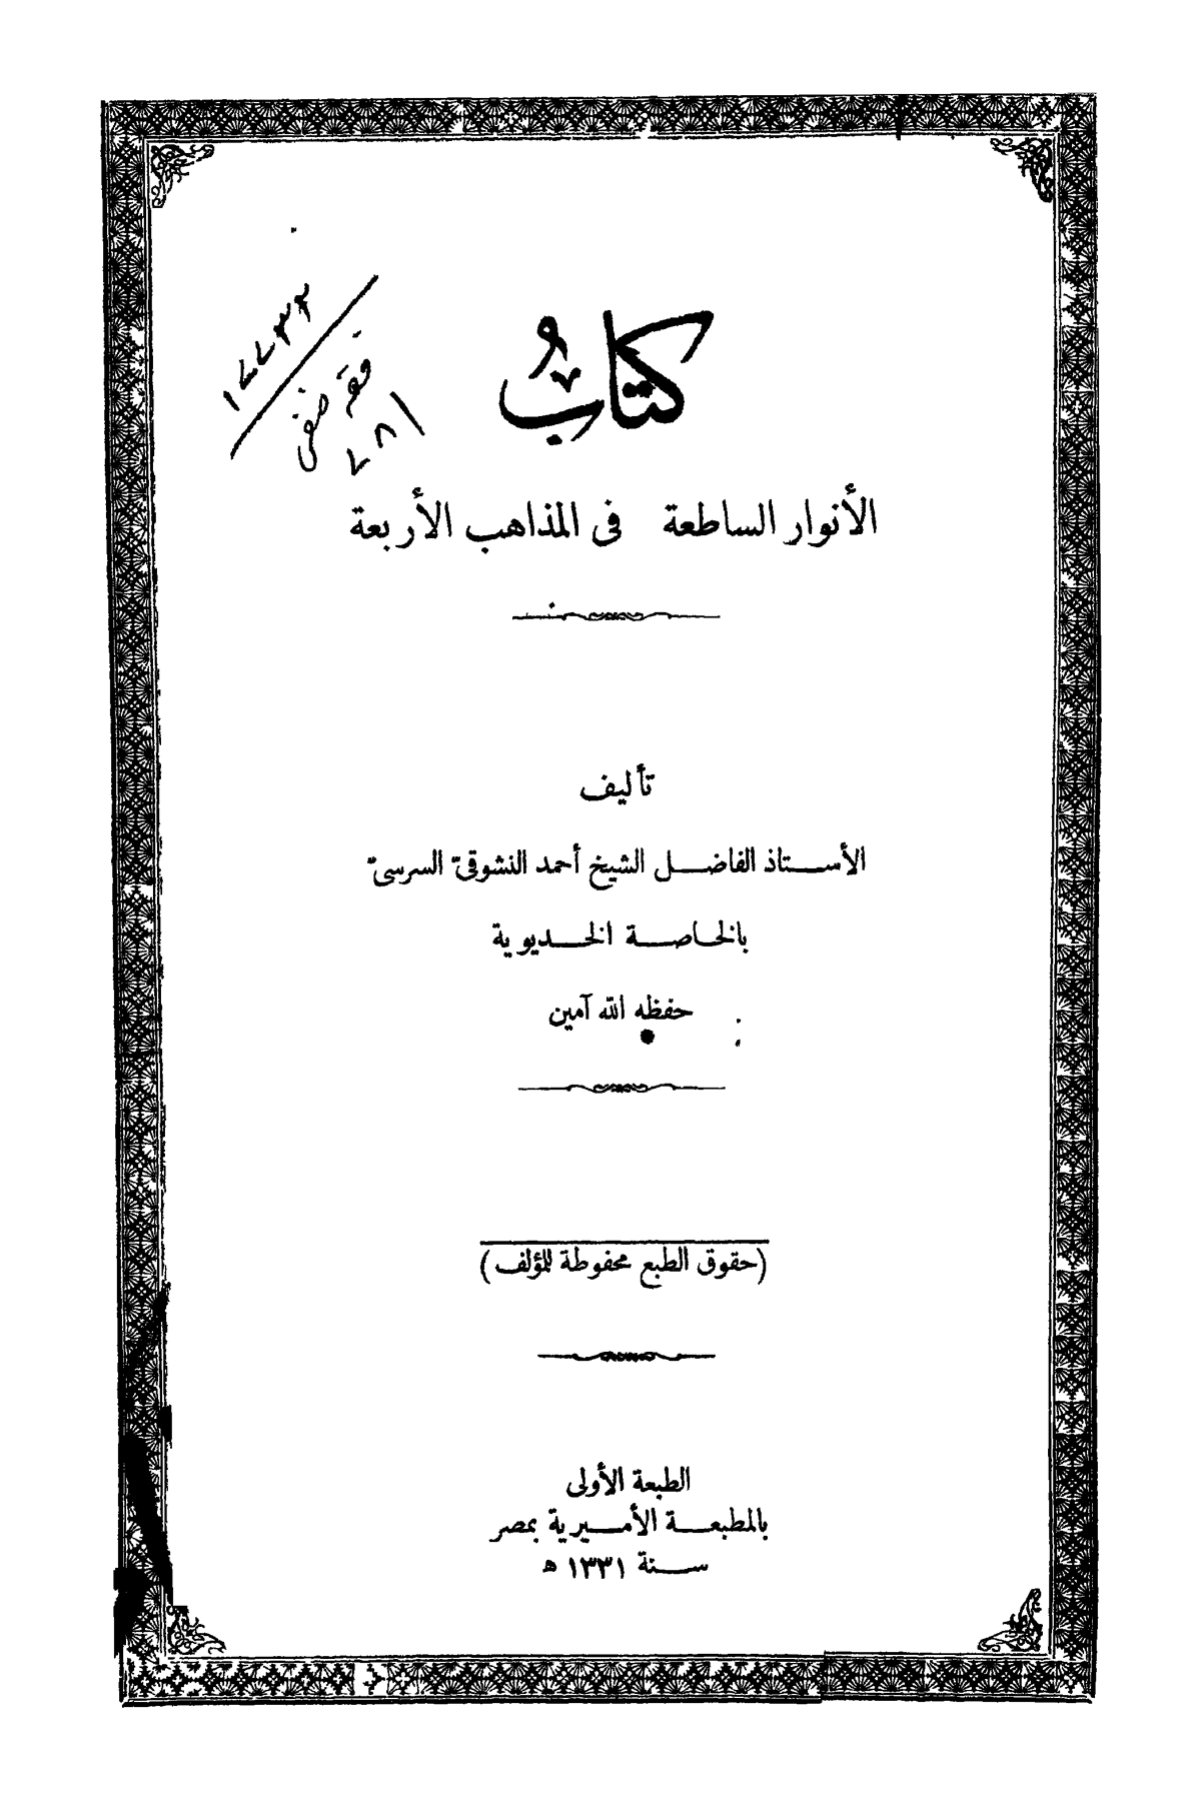 كتابٌ
الأنوار الساطعة فى المذاهب الأربعة
تأليف
الأستاذ الفاضل الشيخ أحمد النشوقىّ السرسىّ
بالخاصة الخديوية
حفظه الله آمين
(حقوق الطبع محفوظة للمؤلف)
الطبعة الأولى
بالمطبعة الأميرية بمصر
سنة ١٣٣١ ه
فقه حنفى